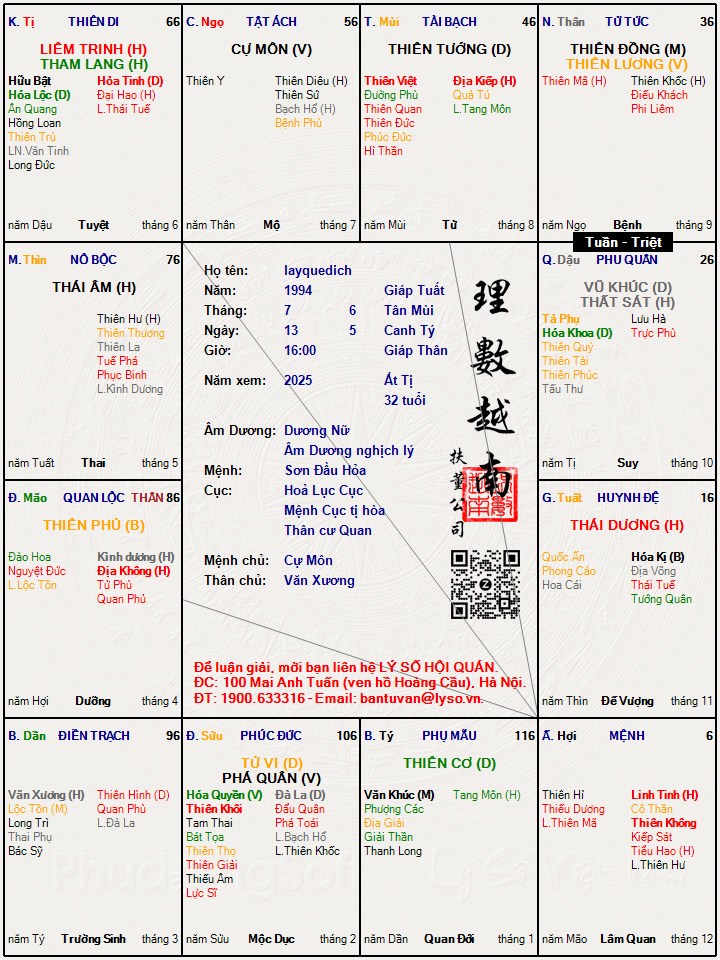 K. Tị THIÊN DI 66
LIÊM TRINH (H)
THAM LANG (H)
Hữu Bật Hỏa Tinh (D)
Hóa Lộc (D) Đại Hao (H)
Ân Quang L.Thái Tuế
Hồng Loan
Thiên Trù
LN.Văn Tinh
Long Đức
năm Dậu Tuyệt tháng 6
C. Ngọ TẬT ÁCH 56
CỰ MÔN (V)
Thiên Y Thiên Diêu (H)
Thiên Sứ
Bạch Hổ (H)
Bệnh Phù
năm Thân Mộ tháng 7
T. Mùi TÀI BẠCH 46
THIÊN TƯỚNG (D)
Thiên Việt Địa Kiếp (H)
Đường Phù Quả Tú
Thiên Quan L.Tang Môn
Thiên Đức
Phúc Đức
Hỉ Thần
năm Mùi Tử tháng 8
N. Thân TỬ TỨC 36
THIÊN ĐỒNG (M)
THIÊN LƯƠNG (V)
Thiên Mã (H) Thiên Khốc (H)
Điếu Khách
Phi Liêm
năm Ngọ Bệnh tháng 9
Tuần - Triệt
M. Thìn NÔ BỘC 76
THÁI ÂM (H)
Thiên Hư (H)
Thiên Thương
Thiên La
Tuế Phá
Phục Binh
L.Kình Dương
năm Tuất Thai tháng 5
Họ tên: layquedich
Năm: 1994 Giáp Tuất
Tháng: 7 6 Tân Mùi
Ngày: 13 5 Canh Tý
Giờ: 16:00 Giáp Thân
Năm xem: 2025 Ất Tị
32 tuổi
Âm Dương: Dương Nữ
Âm Dương nghịch lý
Mệnh: Sơn Đầu Hỏa
Cục: Hoả Lục Cục
Mệnh Cục tị hòa
Thân cư Quan
Mệnh chủ: Cự Môn
Thân chủ: Văn Xương
理數越南
扶董公司
Để luận giải, mời bạn liên hệ LÝ SỐ HỘI QUÁN.
ĐC: 100 Mai Anh Tuấn (ven hồ Hoàng Cầu), Hà Nội.
ĐT: 1900.633316 - Email: bantuvan@lyso.vn.
Q. Dậu PHU QUÂN 26
VŨ KHÚC (D)
THẤT SÁT (H)
Tả Phụ Lưu Hà
Hóa Khoa (D) Trực Phù
Thiên Quý
Thiên Tài
Thiên Phúc
Tấu Thư
năm Tị Suy tháng 10
Đ. Mão QUAN LỘC THÂN 86
THIÊN PHỦ (B)
Đào Hoa Kình dương (H)
Nguyệt Đức Địa Không (H)
L.Lộc Tồn Tử Phù
Quan Phủ
năm Hợi Dưỡng tháng 4
G. Tuất HUYNH ĐỆ 16
THÁI DƯƠNG (H)
Quốc Ấn Hóa Kị (B)
Phong Cáo Địa Võng
Hoa Cái Thái Tuế
Tướng Quân
năm Thìn Đế Vượng tháng 11
B. Dần ĐIỀN TRẠCH 96
Văn Xương (H) Thiên Hình (D)
Lộc Tồn (M) Quan Phù
Long Trì L.Đà La
Thai Phụ
Bác Sỹ
năm Tý Trường Sinh tháng 3
Đ. Sửu PHÚC ĐỨC 106
TỬ VI (D)
PHÁ QUÂN (V)
Hóa Quyền (V) Đà La (D)
Thiên Khôi Đẩu Quân
Tam Thai Phá Toái
Bát Tọa L.Bạch Hổ
Thiên Thọ L.Thiên Khốc
Thiên Giải
Thiếu Âm
Lực Sĩ
năm Sửu Mộc Dục tháng 2
B. Tý PHỤ MẪU 116
THIÊN CƠ (D)
Văn Khúc (M) Tang Môn (H)
Phượng Các
Địa Giải
Giải Thần
Thanh Long
năm Dần Quan Đới tháng 1
Ấ. Hợi MỆNH 6
Thiên Hỉ Linh Tinh (H)
Thiếu Dương Cô Thần
L.Thiên Mã Thiên Không
Kiếp Sát
Tiểu Hao (H)
L.Thiên Hư
năm Mão Lâm Quan tháng 12